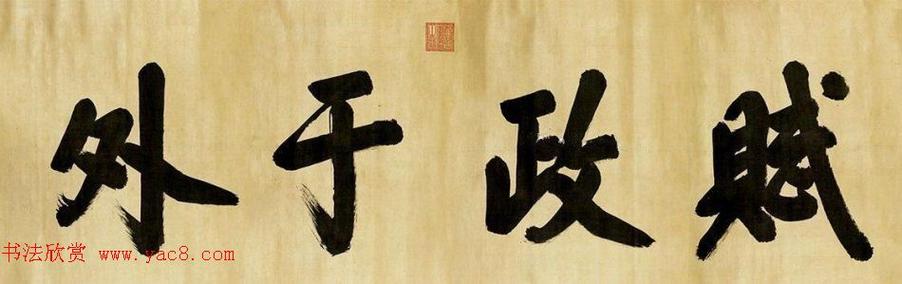 賦政于外
书法欣赏 www.yac8.com